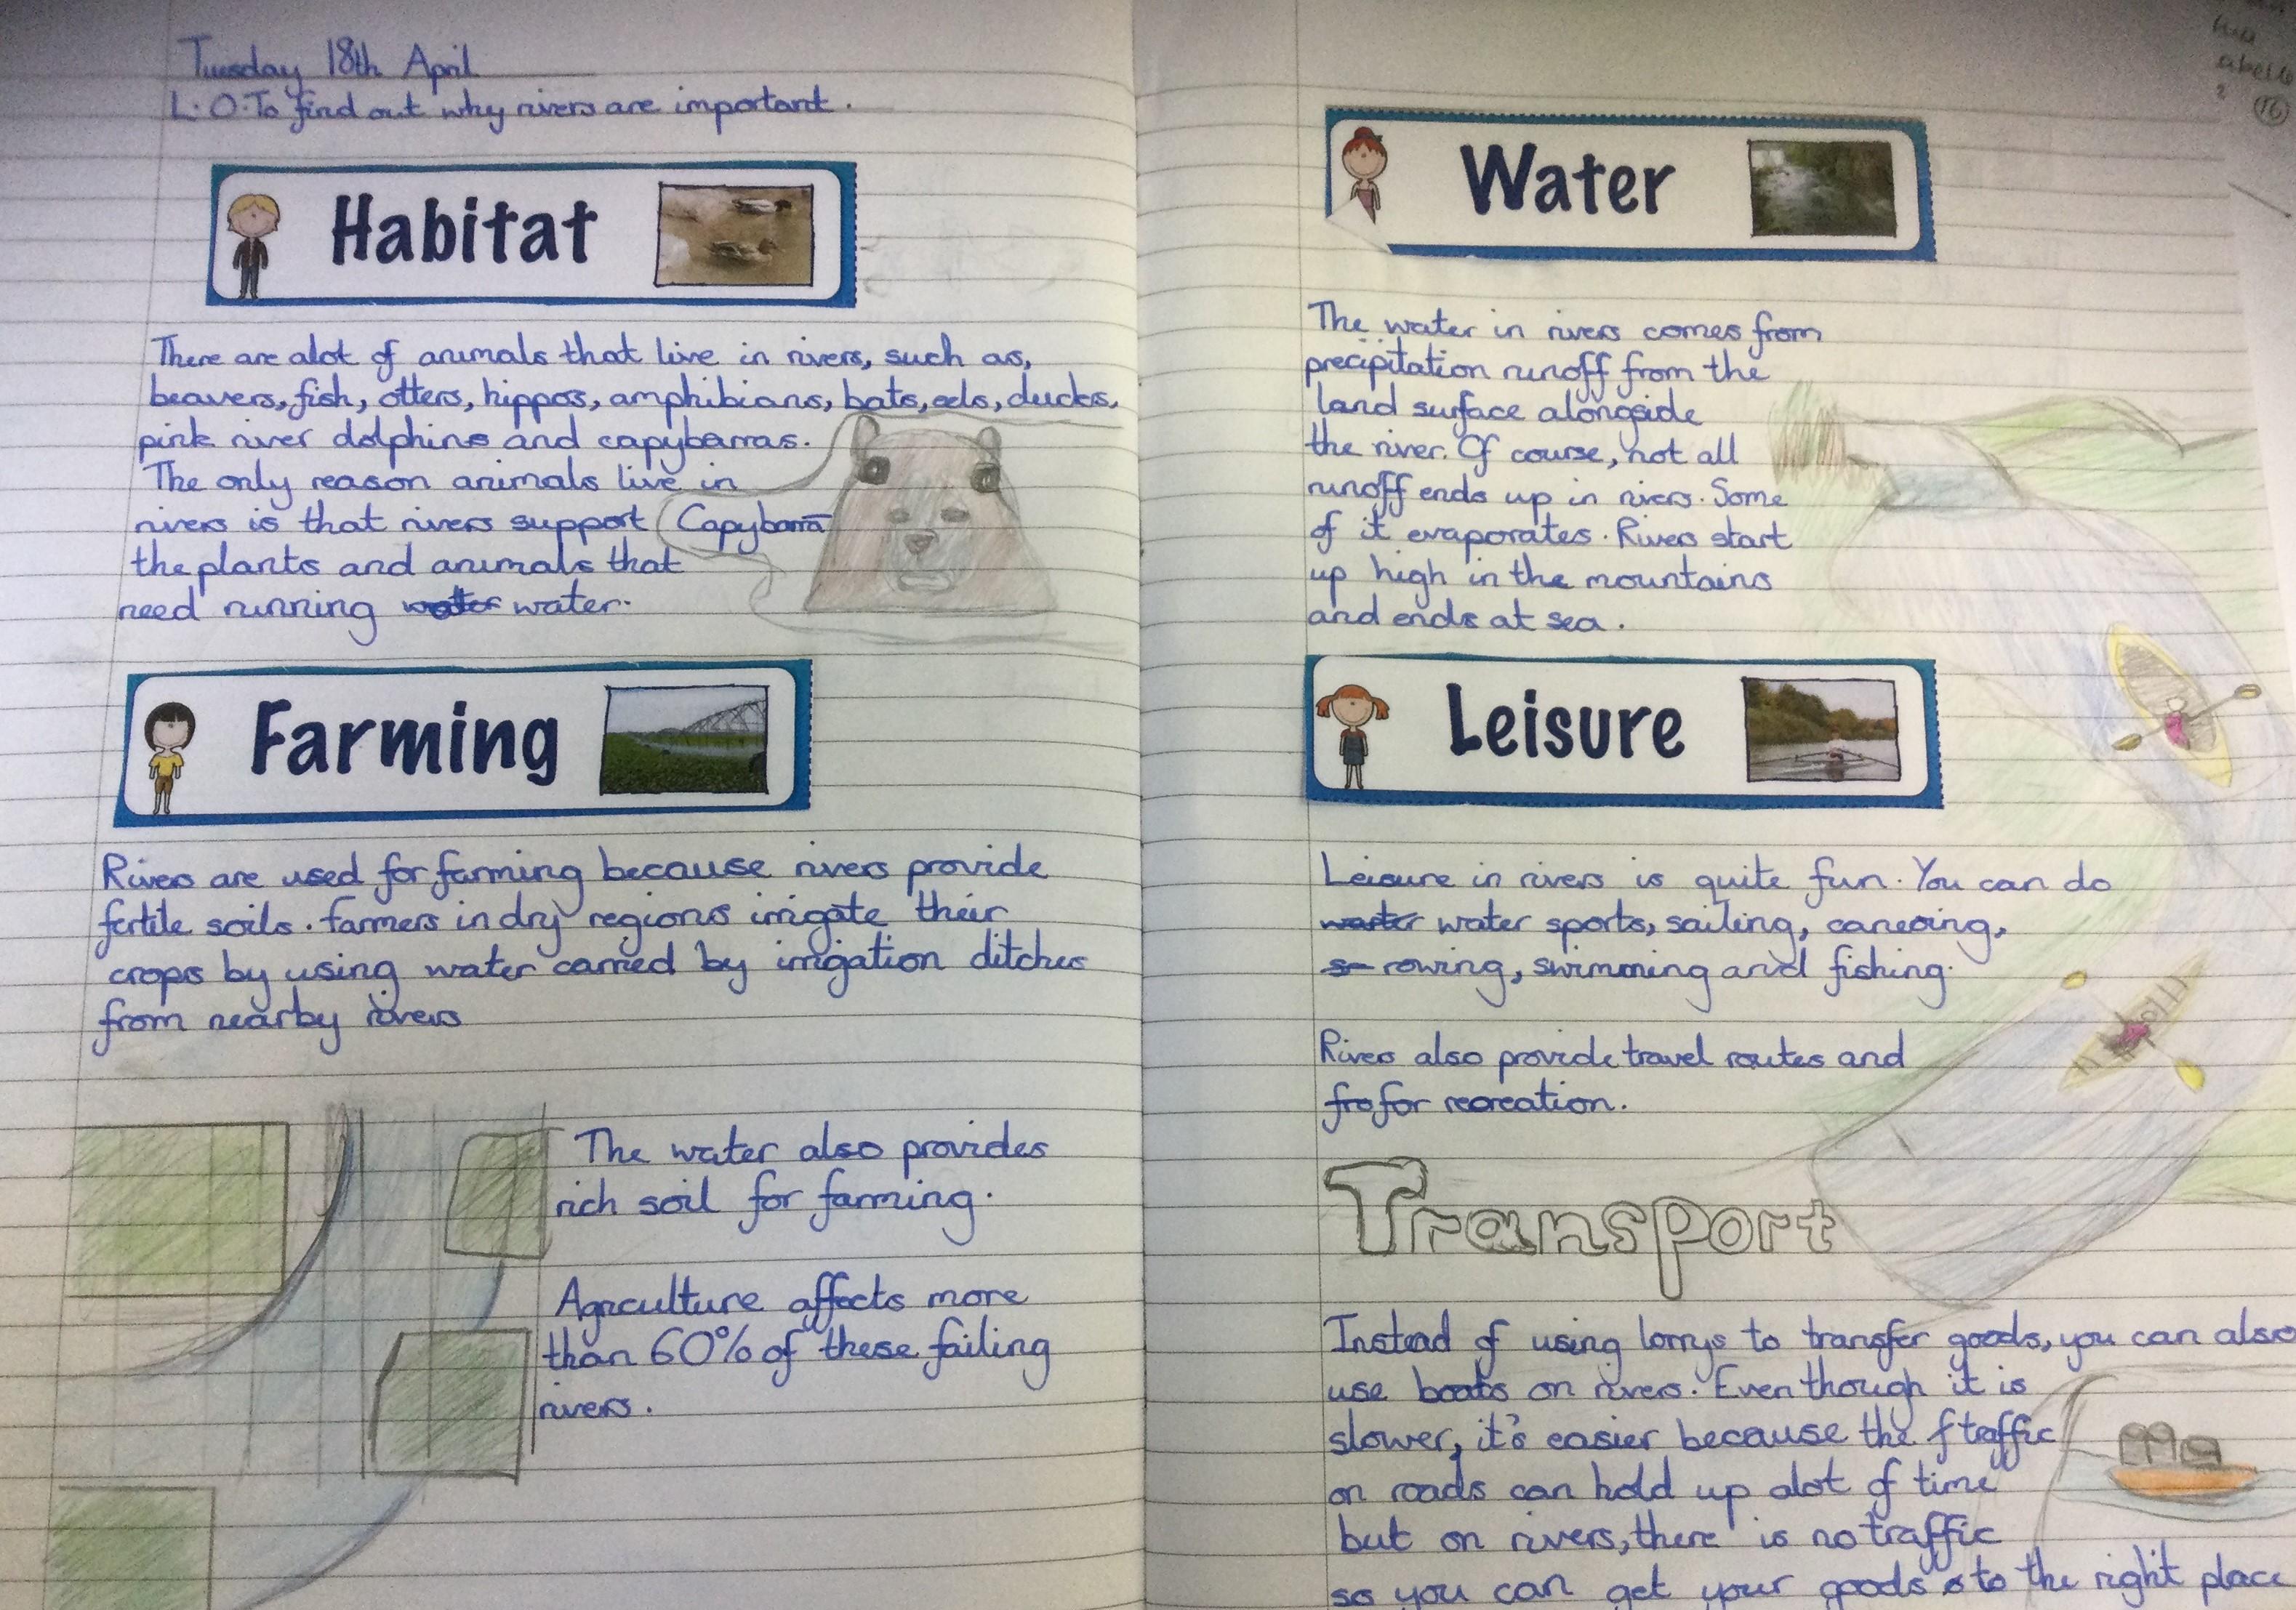 Tuesday 18th April
L.O.To find out why rivers are important.
Habitat
There are alot of animals that live in rivers, such as,
beavers, fish, otters, hippos, amphibians, bats, eels, ducks,
pink river dolphins and capybarras.
The only reason animals live in
rivers is that rivers support
Capybarra
the plants and animals that
need running water water.
Farming
Rivers are used for farming because rivers provide
fertile soils. Farmers in dry regions irrigate their
crops by using water carried by irrigation ditches
from nearby rivers
The water also provides
rich soil for farming.
Agriculture affects more
than 60% of these failing
rivers.
Water
The water in rivers comes from
precipitation runoff from the
land surface alongside
the river. Of course, not all
runoff ends up in rivers. Some
of it evaporates. Rivers start
up high in the mountains
and ends at sea.
Leisure
Leisure in rivers is quite fun. You can do
water sports, sailing, canoeing,
rowing, swimming and fishing.
Rivers also provide travel routes and
fro for recreation.
Transport
Instead of using lorrys to transfer goods, you can also
use boats on rivers. Even though it is
slower, it's easier because the f traffic
on roads can hold up alot of time
but on rivers, there is no traffic
so you can get your goods to the right place
(16)